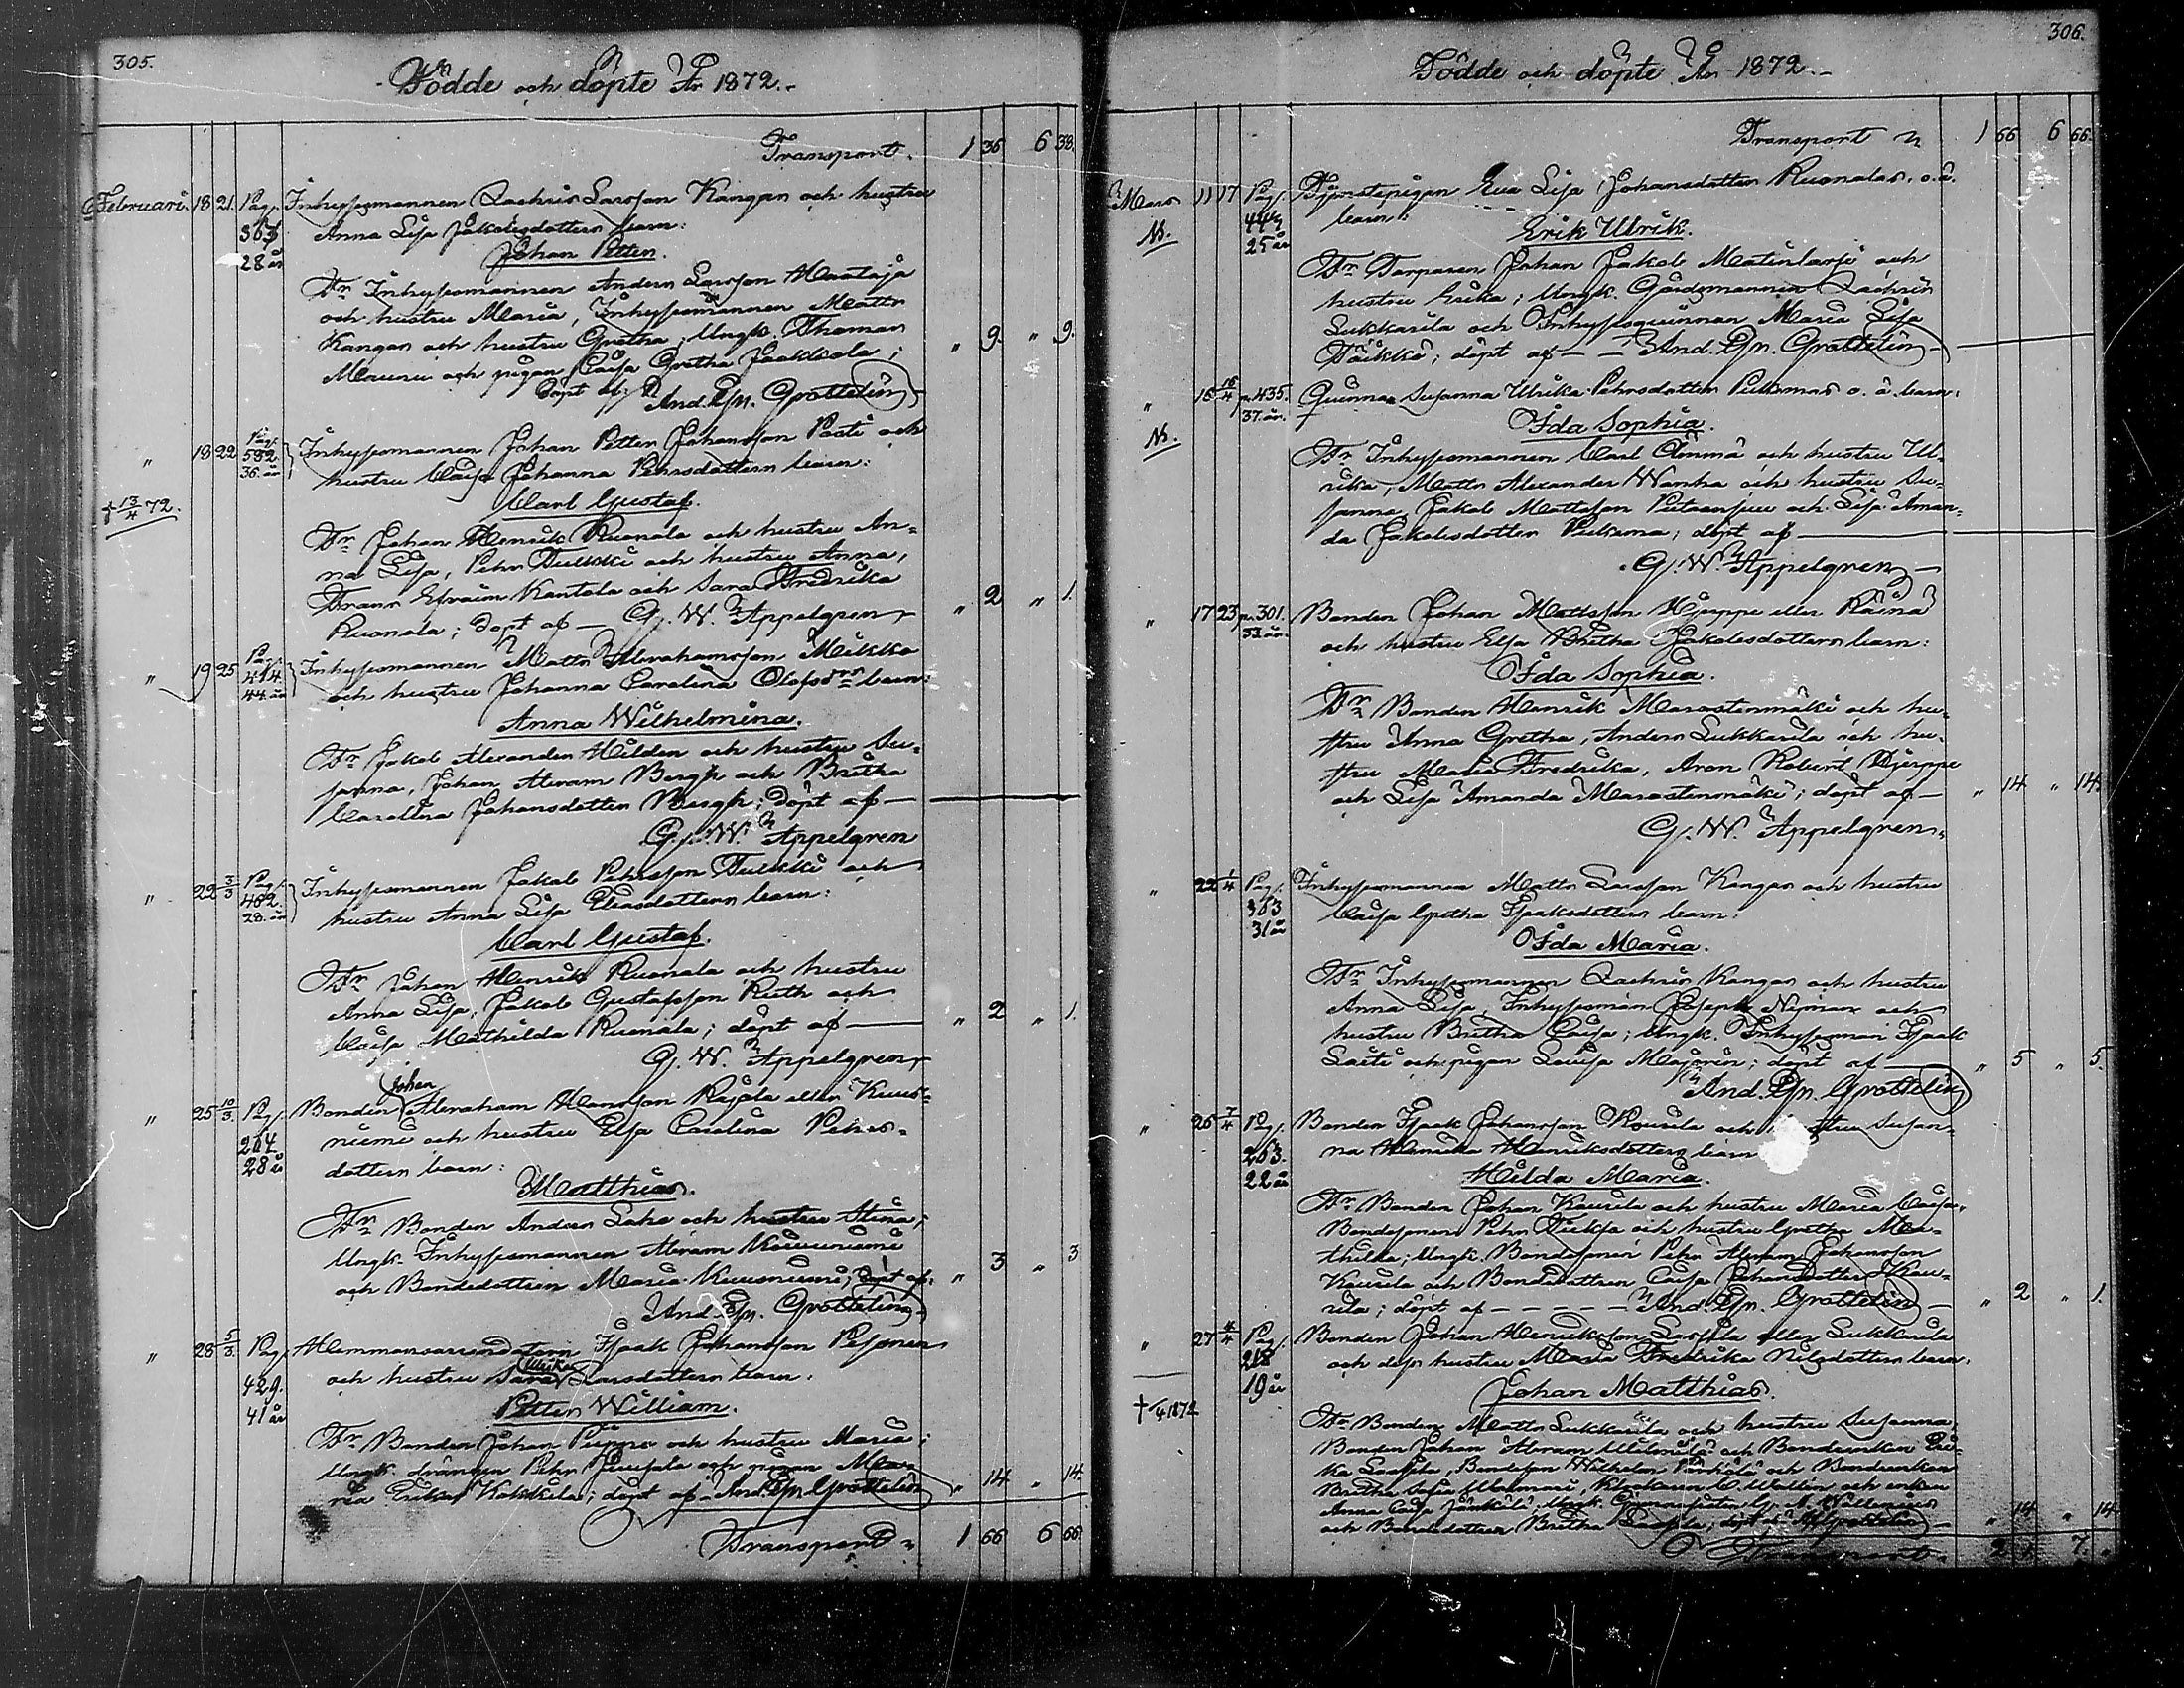 305.
Födde och döpte År 1872.
Transport. 1 36 6 38.
Februari. 18 21. Pag. Inhysesmannen Zachris Larsson Kangas och hustru
303 Anna Lisa Jakobsdotters barn:
28 år Johan Petter.
Fr. Inhysesmannen Anders Larsson Mantaja
och hustru Maria, Inhysesmannen Matts
Kangas och hustru Gretha; Ungk. Thomas
Maunu och pigan Caisa Gretha Jaakkola; " 9. " 9.
döpt af: And. Joh. Grottelin
" 18 22 Pag. Inhysesmannen Johan Petter Johansson Pasti och
582. hustru Caisa Johanna Pehrsdotters barn:
36. år
† 13/4 72. Carl Gustaf.
Fr. Johan Henrik Ruonala och hustru An-
na Lisa, Pehr Tulkki och hustru Anna,
Frans Efraim Kantola och Sara Fredrika
Ruonala; döpt af — G. W. Appelgren " 2 " 1.
" 19 25 Pag. Inhysesmannen Matts Abrahamsson Mikko
414 och hustru Johanna Carolina Olofsdrs barn:
44 år
Anna Wilhelmina.
Fr. Jakob Alexander Hilden och hustru Su-
sanna, Johan Abram Bergh och Britha
Carolina Johansdotter Bergh; döpt af —
G. W. Appelgren
" 22 3/3 Pag. Inhysesmannen Jakob Pehrsson Tulkki och
482. hustru Anna Lisa Eliasdotters barn:
28. år
Carl Gustaf.
Fr. Johan Henrik Ruonala och hustru
Anna Lisa, Jakob Gustafsson Ruth och
Caisa Mathilda Ruonala; döpt af — " 2 " 1.
G. W. Appelgren
Johan
" 25 10/3. Pag. Bonden Abraham Hansson Rajala eller Kuus-
264 niemi och hustru Elsa Carolina Pehrs-
28 år dotters barn:
Matthias.
Fr. Bonden Anders Saha och hustru Stina;
Ungk. Inhysesmannen Abram Kouvuniemi
och Bondedottren Maria Kuusniemi; döpt af: " 3 " 3
And. Joh. Grottelin
" 28 5/3. Pag. Hemmansarrendatorn Isaak Johansson Pesonen
Ulrika
429. och hustru Sara Larsdotters barn:
41 år Petter William.
Fr. Bonden Johan Piippo och hustru Maria;
Ungk. drängen Pehr Juusola och pigan Ma-
ria Erika Kokkila; döpt af And. Joh. Grottelin " 14 " 14
Transport 1 66 6 66
306.
Födde och döpte År 1872.
Transport 1 66 6 66.
Mars 11 17 Pag. Tjenstepigan Eva Lisa Johansdotter Ruonalas. o.ä.
barn:
Nb. 25 år Erik Ulrik.
Fr. Torparen Johan Jakob Matinlassi och
hustru Erika; Ungk. Gårdsmannen Zachris
Lukkarila och Inhysesqvinnan Maria Lisa
Takkki; döpt af — And. Joh. Grottelin
" 15 16/4 p. 435. Qvinnan Susanna Ulrika Pehrsdotter Putkomas o. ä. barn:
37. år.
Nb. Ida Sophia.
Fr. Inhysesmannen Carl Ämmä och hustru Ul-
rika, Matts Alexander Wanha och hustru Su-
sanna, Jakob Mattsson Putaansuu och Lisa Aman-
da Jakobsdotter Putkoma; döpt af —
G. W. Appelgren
" 17 23 p. 301. Bonden Johan Mattsson Hjerppe eller Räinä
och hustru Elsa Britha Jakobsdotters barn:
Ida Sophia.
Fr. Bonden Henrik Marostenmäki och hu-
stru Anna Gretha, Anders Lukkarila och hu-
stru Maria Fredrika, Aron Robert Hjerppe
och Lisa Amanda Marostenmäki; döpt af — " 14 " 14
G. W. Appelgren.
" 22 1/4 Pag. Inhysesmannen Matts Larsson Kangas och hustru
303 Caisa Gretha Isaksdotters barn:
31 år Ida Maria.
Fr. Inhysesmannen Zachris Kangas och hustru
Anna Lisa, Inhysesman Joseph Nyman och
hustru Britha Caisa; Ungk. Inhysesman Isaak
Laiti och pigan Lovisa Majorin; döpt af — " 5 " 5.
And. Joh. Grottelin
" 26 7/4 Pag. Bonden Isaak Johansson Kourila och hustru Susan-
263. na Henrika Henriksdotters barn
22 år Hilda Maria.
Fr. Bonden Johan Kourila och hustru Maria Caisa,
Bondesonen Pehr Tuksa och hustru Gretha Ma-
thilda; Ungk. Bondesonen Pehr Abram Johansson
Kourila och Bondedottren Caisa Johansdotter Kou-
rila; döpt af — And. Joh. Grottelin " 2 " 1.
" 27 4/4 Pag. Bonden Johan Henriksson Lassila eller Lukkarila
218 och dess hustru Maria Fredrika Nilsdotters barn:
19 år Johan Matthias.
† 4 1872
Fr. Bonden Matts Lukkarila och hustru Susanna,
Bonden Johan Abram och Bondenkan Eri-
ka Lassila, Bondeson Wilhelm och Bondeenkan
Britha Sofia, Klockaren C. Wallin och enkan
Anna Caisa; Ungk.
och Bondedottren Britha Lassila; döpt af A. J. Grottelin " 14 " 14
Transport. 2 1 7. "